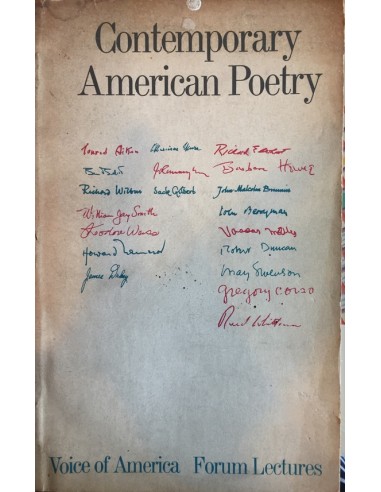 Contemporary
American Poetry
Conrad Aiken Marianne Moore Richard Eberhart
Barbara Howes
Richard Wilbur Jack Gilbert John Malcolm Brinnin
William Jay Smith John Berryman
Theodore Weiss Vassar Miller
Howard Nemerov Robert Duncan
James Dickey May Swenson
gregory corso
Reed Whittemore
Voice of America Forum Lectures